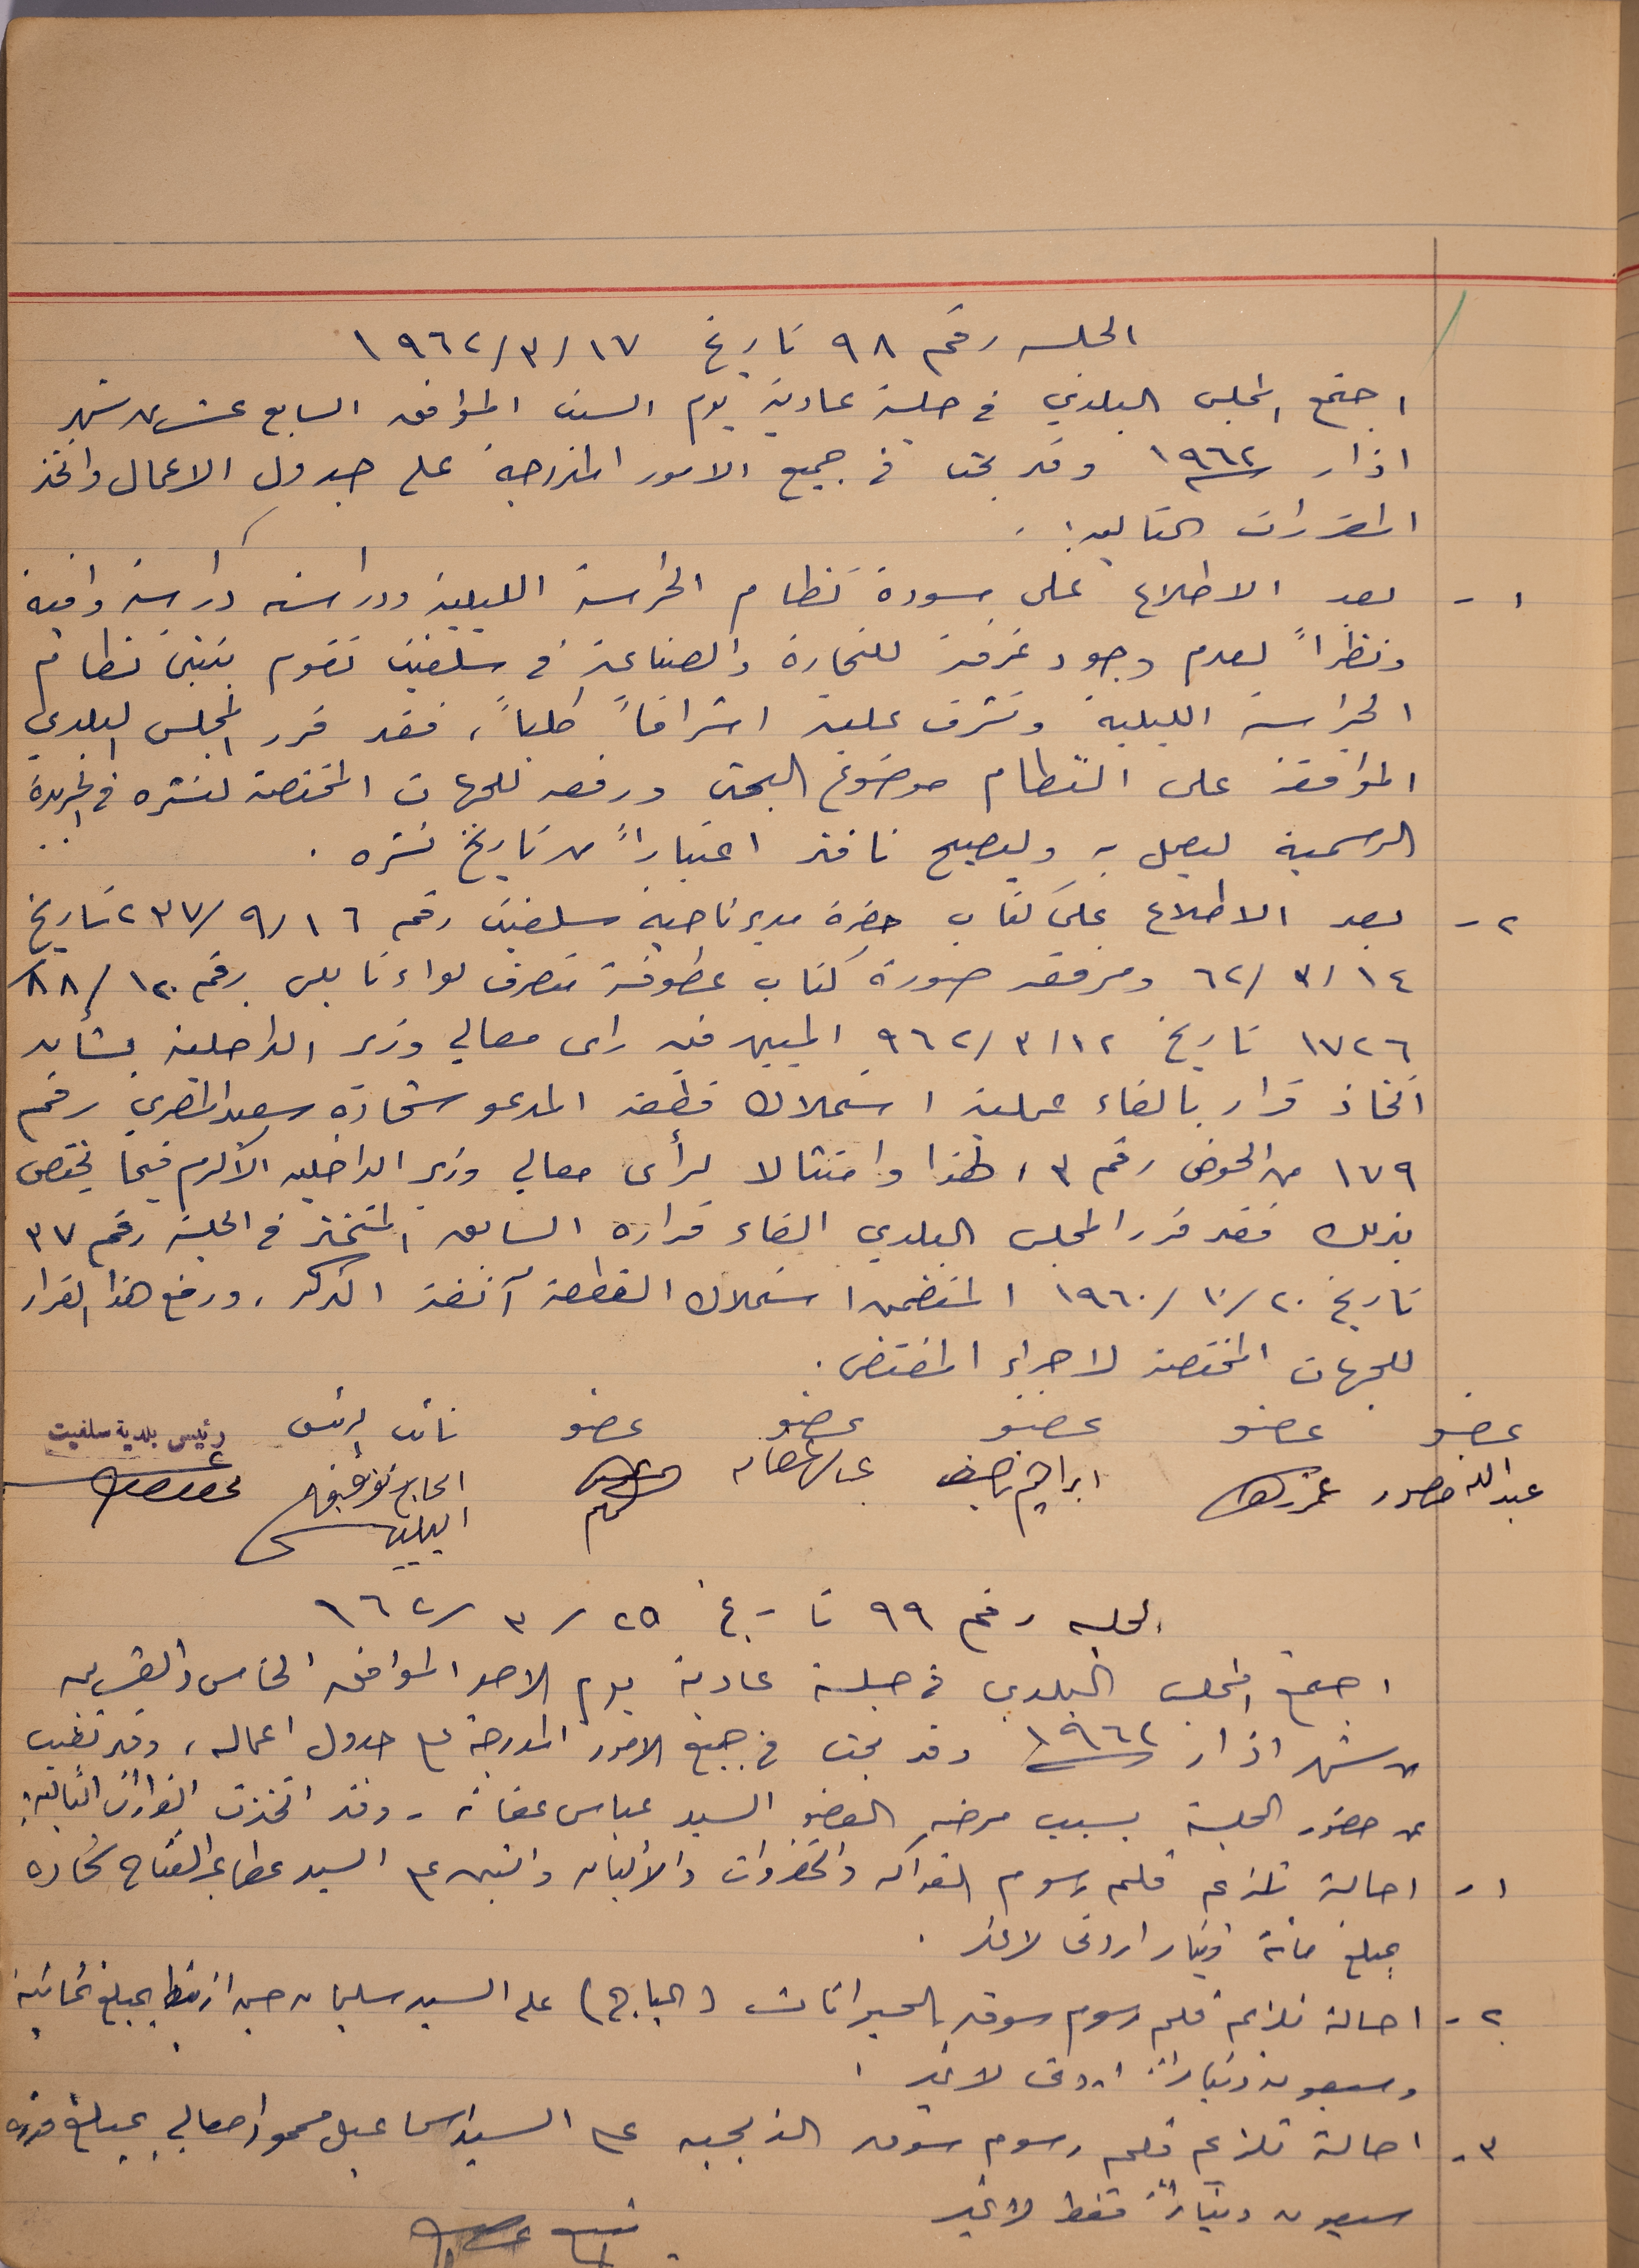 الجلسه رقم ٩٨ تاريخ ١٩٦٢/٣/١٧
اجتمع المجلس البلدي في جلسة عادية يوم السبت الموافق السابع عشر من شهر
اذار ١٩٦٢ وقد بحث في جميع الامور المدرجة على جدول الاعمال واتخذ
المقررات التاليه:
١- بعد الاطلاع على مسودة نظام الحراسة الليلية ودراسته دراسة وافية
ونظراً لعدم وجود غرفة للتجارة والصناعة في سلفيت تقوم بتبني نظام
الحراسة الليلية وتشرف عليه اشرافاً كلياً، فقد قرر المجلس البلدي
الموافقة على النظام موضوع البحث ورفعه للجهات المختصة لنشره في الجريدة
الرسمية ليعمل به وليصبح نافذ اعتباراً من تاريخ نشره .
٢- بعد الاطلاع على كتاب حضرة مدير ناحية سلفيت رقم ٢٣٧/٩/١٦ تاريخ
٦٢/٣/١٤ ومرفقه صورة كتاب عطوفة متصرف لواء نابلس رقم ٨٨/١٢٠/
١٧٢٦ تاريخ ٩٦٢/٣/١٢ المبين فيه راى معالي وزير الداخلية بشأن
اتخاذ قرار بالغاء عملية استملاك قطعة المدعو شحاده سعيد المصري رقم
١٧٩ من الحوض رقم ٣، لهذا وامتثالا لرأى معالي وزير الداخليه الأكرم فيما يختص
بذلك فقد قرر المجلس البلدي الغاء قراره السابق المتخذ في الجلسة رقم ٣٧
تاريخ ١٩٦٠/١٠/٢٠ المتضمن استملاك القطعة آنفة الذكر، ورفع هذا القرار
للجهات المختصة لاجراء المقتضى .
عضو عضو عضو عضو عضو نائب الرئيس رئيس بلدية سلفيت
عبدالله منصور ابراهيم الحاج توفيق
الجلسه رقم ٩٩ تاريخ ٩٦٢/٣/٢٥
اجتمع المجلس البلدي في جلسة عادية يوم الاحد الموافق الخامس والعشرين
من شهر اذار ١٩٦٢ وقد بحث في جميع الامور المدرجة على جدول اعماله، وقد تغيب
عن حضور الجلسة بسبب مرضه العضو السيد عباس عفانه - وقد اتخذت القرارات التالية:
١- احالة تلزيم قلم رسوم الفواكه والخضروات والألبان والتبن على السيد عطا عبد الفتاح شحاده
بمبلغ مائة دينار اردني لا غير .
٢- احالة تلزيم قلم رسوم سوق الحيوانات (الباج) على السيد سليمان حسن بمبلغ ثمانية
وسبعون ديناراً اردني لا غير .
٣- احالة تلزيم قلم رسوم سوق الذبحيه على السيد اسماعيل محمود بمبلغ قدره
سبعون ديناراً فقط لا غير